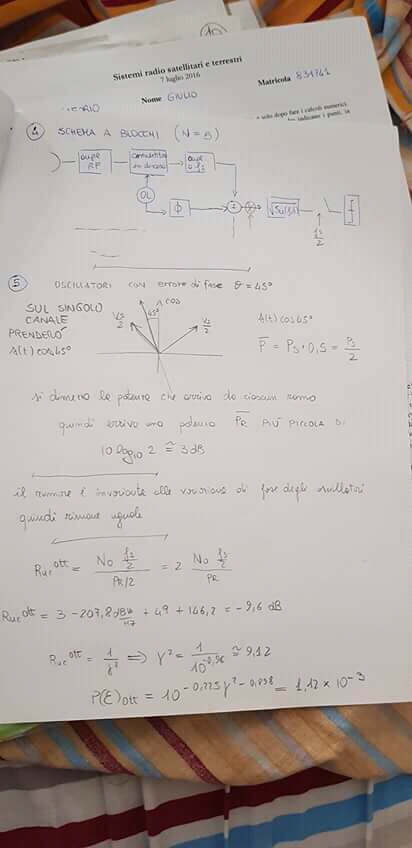 Sistemi radio satellitari e terrestri
7 luglio 2016
Nome GIULIO
Matricola 831761
e solo dopo fare i calcoli numerici.
indicare i punti, in
4 SCHEMA A BLOCCHI (N=B)
RF
OL
ϕ
fs/2
5 OSCILLATORI CON errore di fase θ = 45°
SUL SINGOLO
CANALE
PRENDERÒ
s(t) cos 45°
COS
45°
Vs/2
Vs/2
s(t) cos 45°
P = Ps · 0,5 = Ps/2
si dimezza la potenza che arriva da ciascun ramo
quindi arriva una potenza PR PIÙ PICCOLA DI
10 log10 2 ≅ 3 dB
il rumore è invariante alle variazioni di fase degli oscillatori
quindi rimane uguale
Ruc ott = No fs/2 / PR/2 = 2 No fs/2 / PR
Ruc ott = 3 - 207,8 dBW/Hz + 49 + 146,2 = -9,6 dB
Ruc ott = 1/γ² ⟹ γ² = 1/10^-0,96 ≅ 9,12
P(E)ott = 10^-0,225γ²-0,898 = 1,12 × 10^-3